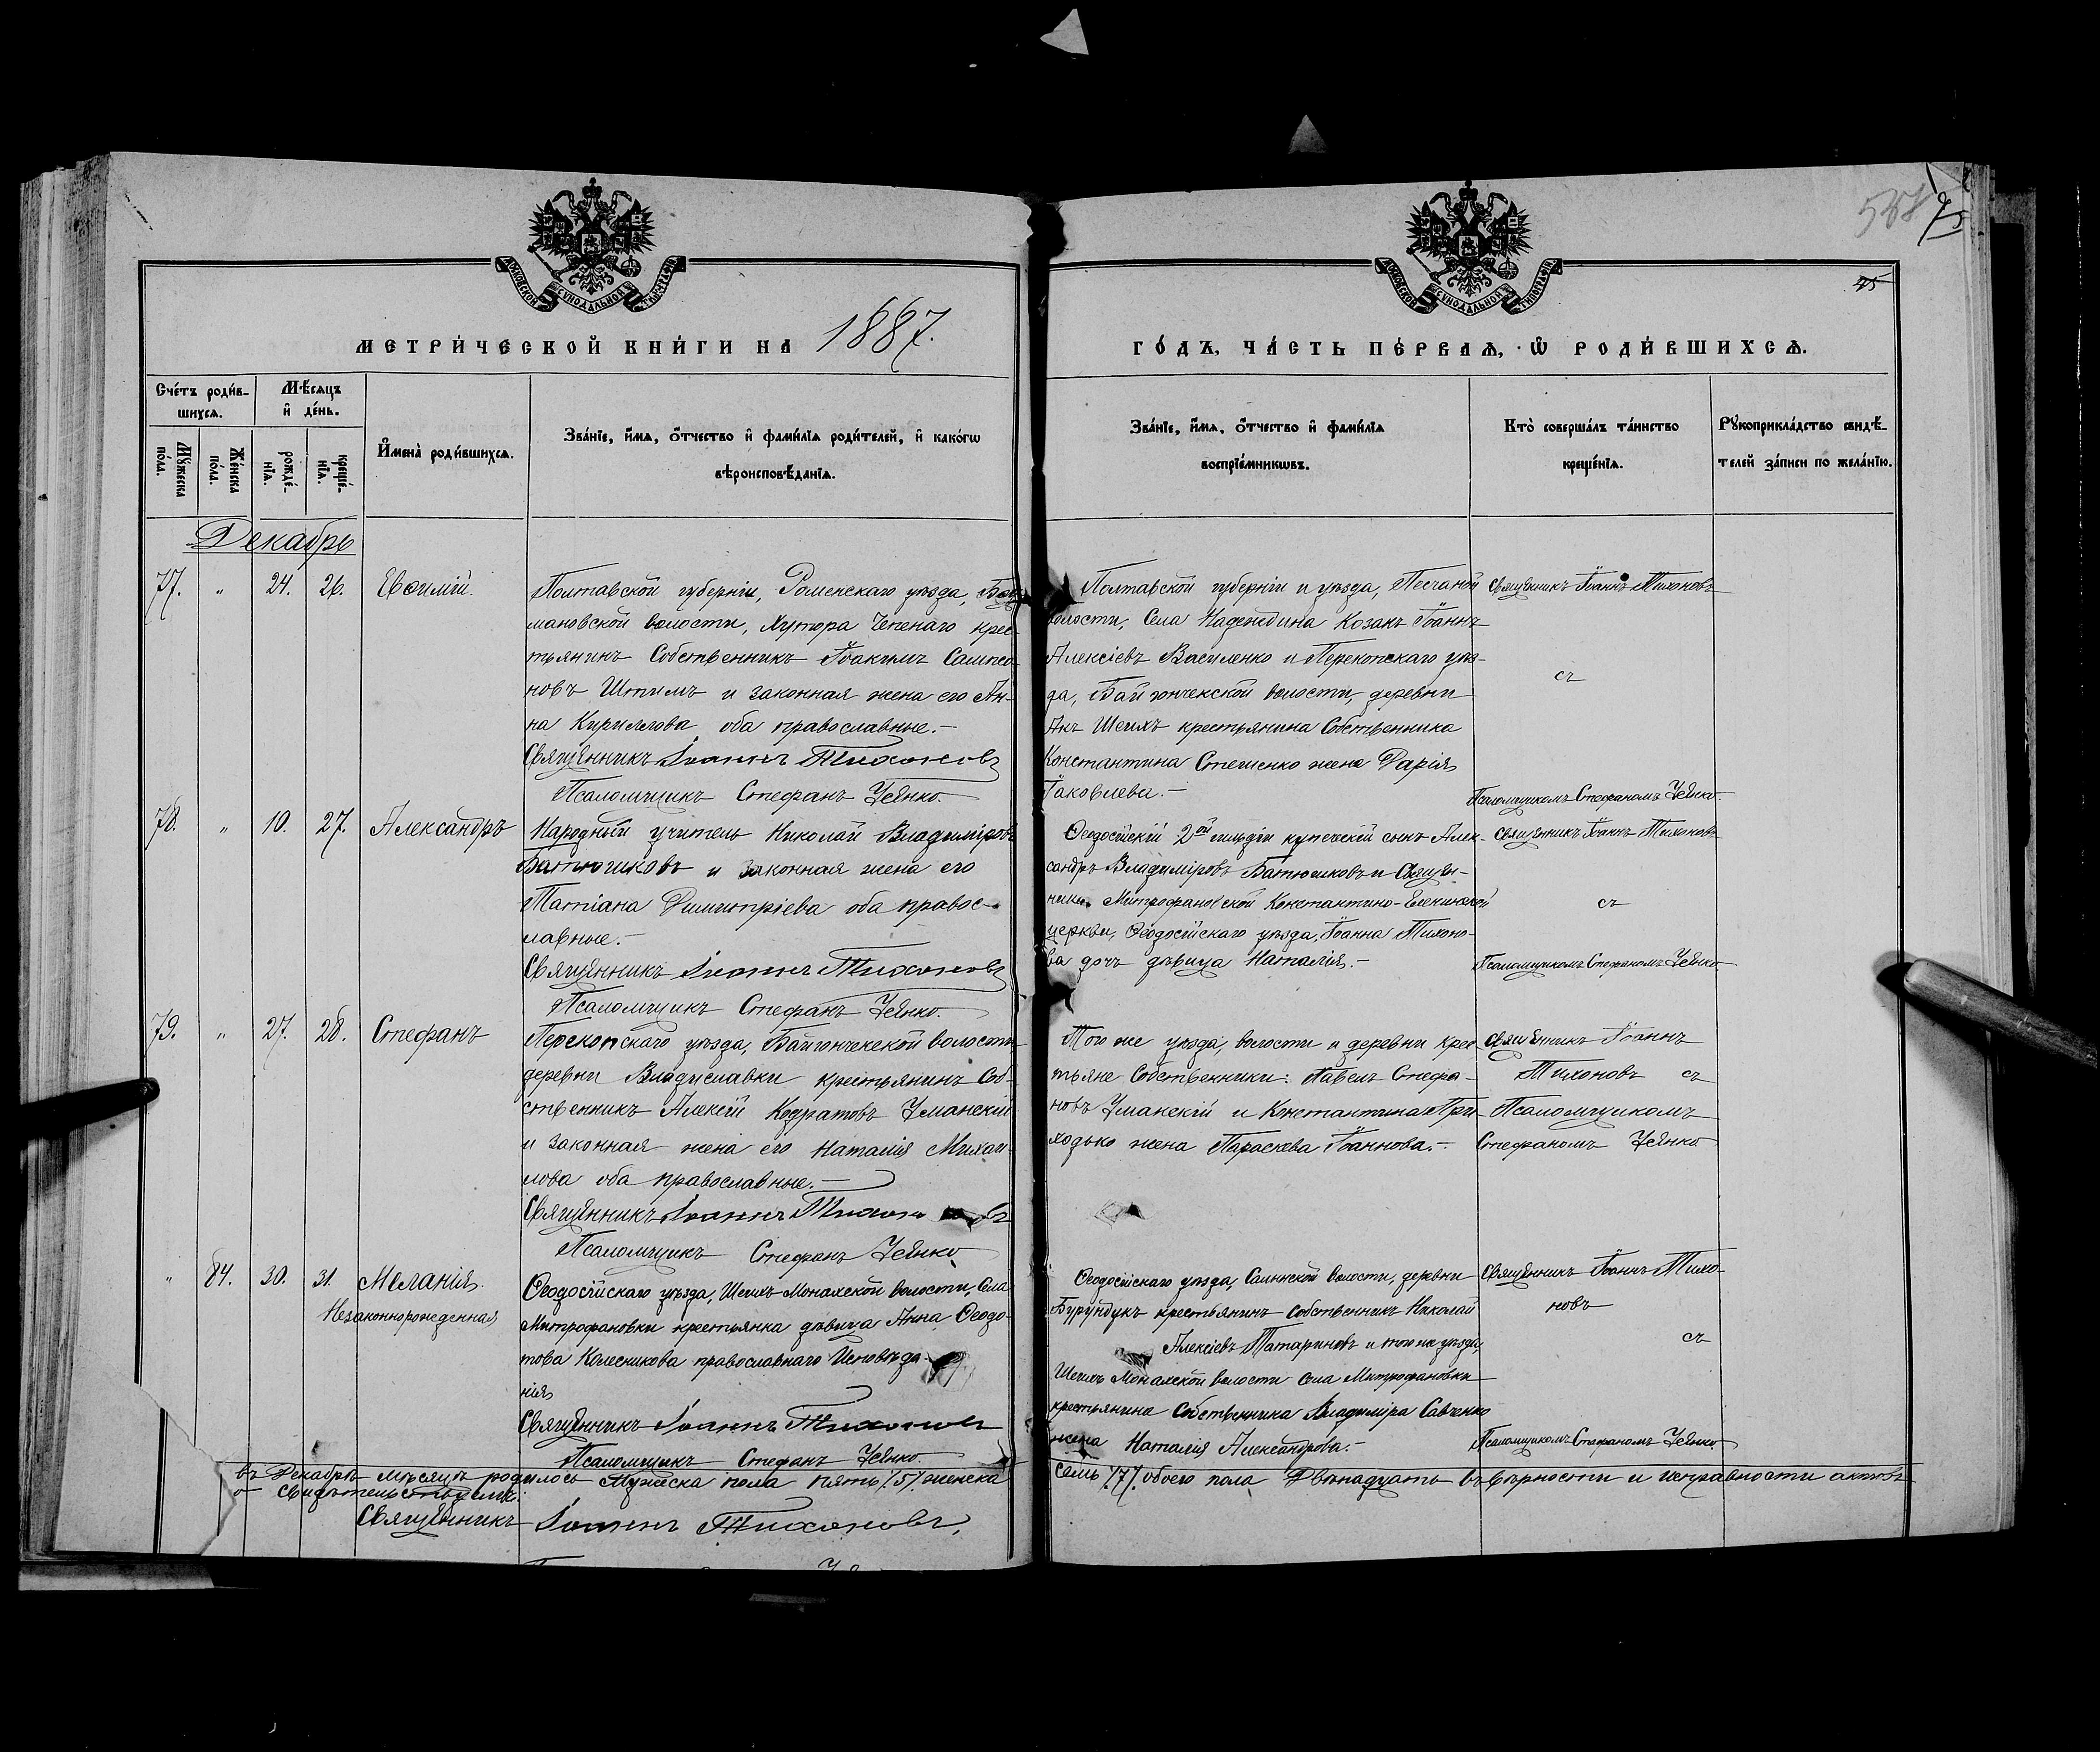 538 75
75
МОСКОВСКОЙ СѴНОДАЛЬНОЙ ТИПОГРАФІИ
МОСКОВСКОЙ СѴНОДАЛЬНОЙ ТИПОГРАФІИ
МЕТРИ́ЧЕСКОЙ КНИ́ГИ НА 1887.
ГО́ДЪ, ЧА́СТЬ ПЕ́РВАѦ, Ѡ РОДИ́ВШИХСѦ.
Сче́тъ роди́в-
шихсѧ.
Мѣ́сѧцъ
и҆ де́нь.
Мꙋ́жеска
по́ла.
Же́нска
по́ла.
рожде́-
нїѧ.
креще́-
нїѧ.
И҆мена̀ роди́вшихсѧ.
Зва́нїе, и҆́мѧ, ѻ҆́тчество и҆ фами́лїѧ роди́телей, и҆ како́гѡ
вѣроисповѣ́данїѧ.
Зва́нїе, и҆́мѧ, ѻ҆́тчество и҆ фами́лїѧ
воспрїе́мникѡвъ.
Кто̀ соверша́лъ та́инство
креще́нїѧ.
Рꙋкоприкла́дство свидѣ́-
телей за́писи по жела́нїю.
Декабрь
77. " 24. 26. Евѳимій.
Полтавской губерніи, Роменскаго уѣзда,
мановской волости, Хутора Чепенаго крес-
тьянинъ Собственникъ Іоакимъ Сампсо-
новъ Штимъ и законная жена его Ан-
на Кириллова оба православные.-
Священникъ Іоаннъ Тихоновъ
Псаломщикъ Стефанъ Уянко.
Полтавской губерніи и уѣзда, Песчаной
волости, Села Надеждина Козакъ Іоаннъ
Алексіевъ Василенко и Перекопскаго уѣз-
да, Байгончекской волости, деревни
Акъ Шеихъ крестьянина Собственника
Константина Стеценко жена Дарія
Іаковлева.-
Священникъ Іоаннъ Тихоновъ
съ
Псаломщикомъ Стефаномъ Уянко.
78. " 10. 27. Александръ
Народный учитель Николай Владиміровъ
Батюшковъ и законная жена его
Татіана Димитріева оба правос-
лавные.-
Священникъ Іоаннъ Тихоновъ
Псаломщикъ Стефанъ Уянко.
Ѳеодосійскій 2ой гильдіи купеческій сынъ Алек-
сандръ Владиміровъ Батюшковъ и Священ-
ника Митрофановской Константино-Еленинской
церкви, Ѳеодосійскаго уѣзда, Іоанна Тихоно-
ва дочь дѣвица Наталія.-
Священникъ Іоаннъ Тихоновъ
съ
Псаломщикомъ Стефаномъ Уянко
79. " 27. 28. Стефанъ
Перекопскаго уѣзда, Байгончекской волости,
деревни Владиславки крестьянинъ Соб-
ственникъ Алексій Кодратовъ Уманскій
и законная жена его Наталія Михаи-
лова оба православные.-
Священникъ Іоаннъ Тихоновъ
Псаломщикъ Стефанъ Уянко
Того же уѣзда, волости и деревни крес-
тьяне Собственники: Павелъ Стефа-
новъ Уманскій и Константина При-
ходько жена Параскева Іоаннова.-
Священникъ Іоаннъ
Тихоновъ съ
Псаломщикомъ
Стефаномъ Уянко
" 84. 30. 31. Меланія.
Незаконнорожденная
Ѳеодосійскаго уѣзда, Шеихъ Монахской волости, Села
Митрофановки крестьянка дѣвица Анна Ѳеодо-
това Колесникова православнаго Исповѣда-
нія
Священникъ Іоаннъ Тихоновъ
Псаломщикъ Стефанъ Уянко.
Ѳеодосійскаго уѣзда, волости, деревни
Бурундукъ крестьянинъ Собственникъ Николай
Алексіевъ Татариновъ и того же уѣзда,
Шеихъ Монахской волости Села Митрофановки
крестьянина Собственника Владиміра Савченко
жена Наталія Александрова.-
Священникъ Іоаннъ Тихо-
новъ
съ
Псаломщикомъ Стефаномъ Уянко
въ Декабрѣ мѣсяцѣ родилось Мужеска пола пять /5/. женска
семь /7/. обоего пола Двѣнадцать въ вѣрности и исправности актовъ
свидѣтельствуемъ:
Священникъ Іоаннъ Тихоновъ,